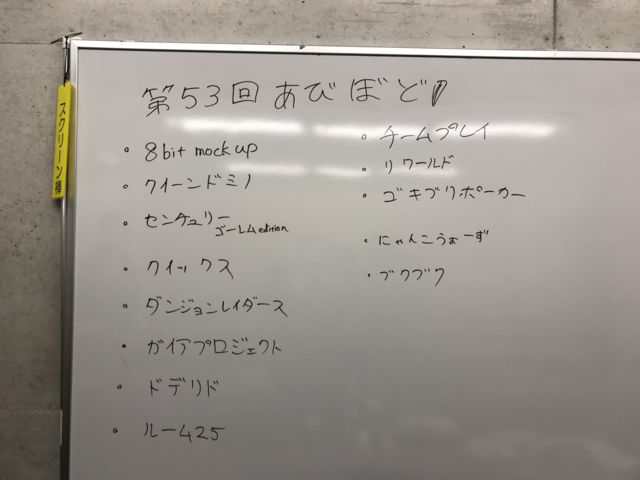 第53回 あびぼど
スクリーン棒
・8bit mock up
・クイーンドミノ
・センチュリー ゴーレムedition
・クイックス
・ダンジョンレイダース
・ガイアプロジェクト
・ドデリド
・ルーム25
・チームプレイ
・リワールド
・ゴキブリポーカー
・にゃんこうぉーず
・ブクブク